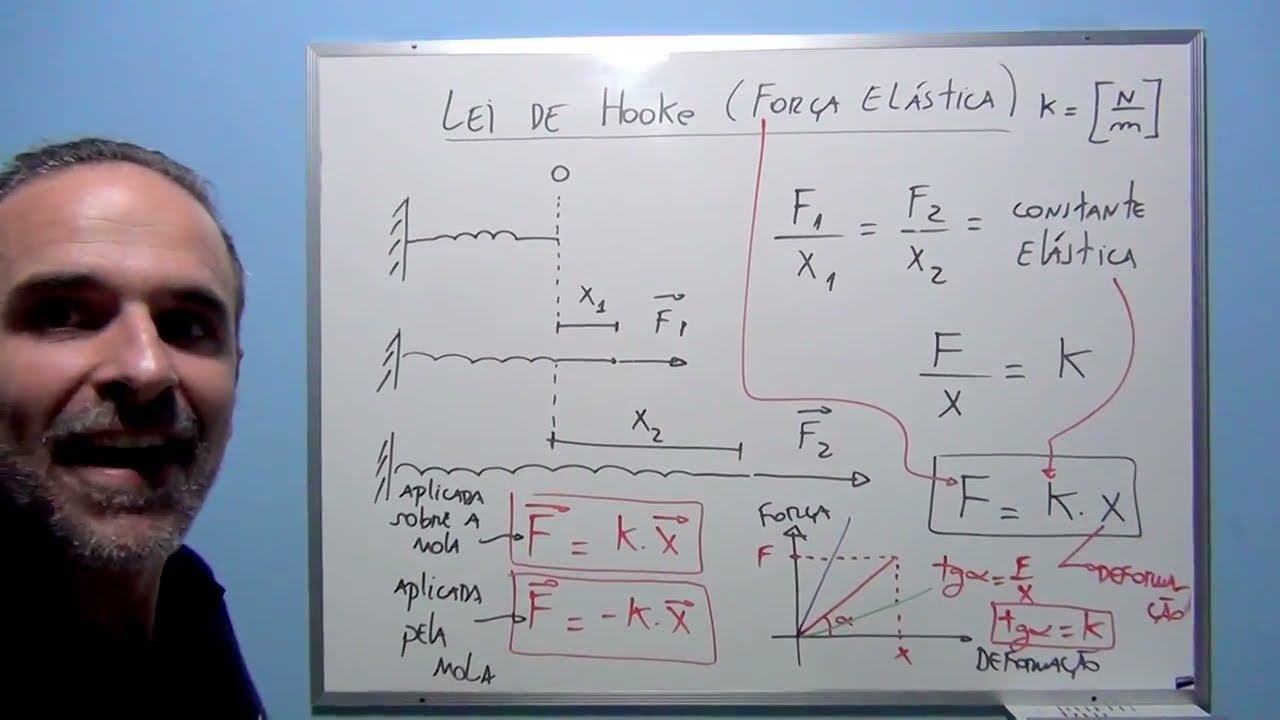 LEI DE HOOKE (FORÇA ELÁSTICA) K = [N/m]
O
F1/X1 = F2/X2 = CONSTANTE ELÁSTICA
X1
F1
F/X = K
X2
F2
F = K. X
DEFORMAÇÃO
APLICADA
SOBRE A
MOLA
F = K. X
APLICADA
PELA
MOLA
F = -K. X
FORÇA
F
α
X
DEFORMAÇÃO
tgα = F/X
tgα = K